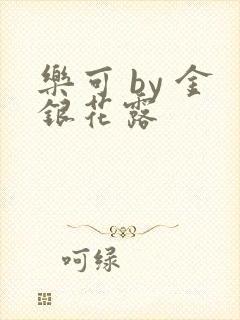 樂可 by 金
銀花露
呵绿